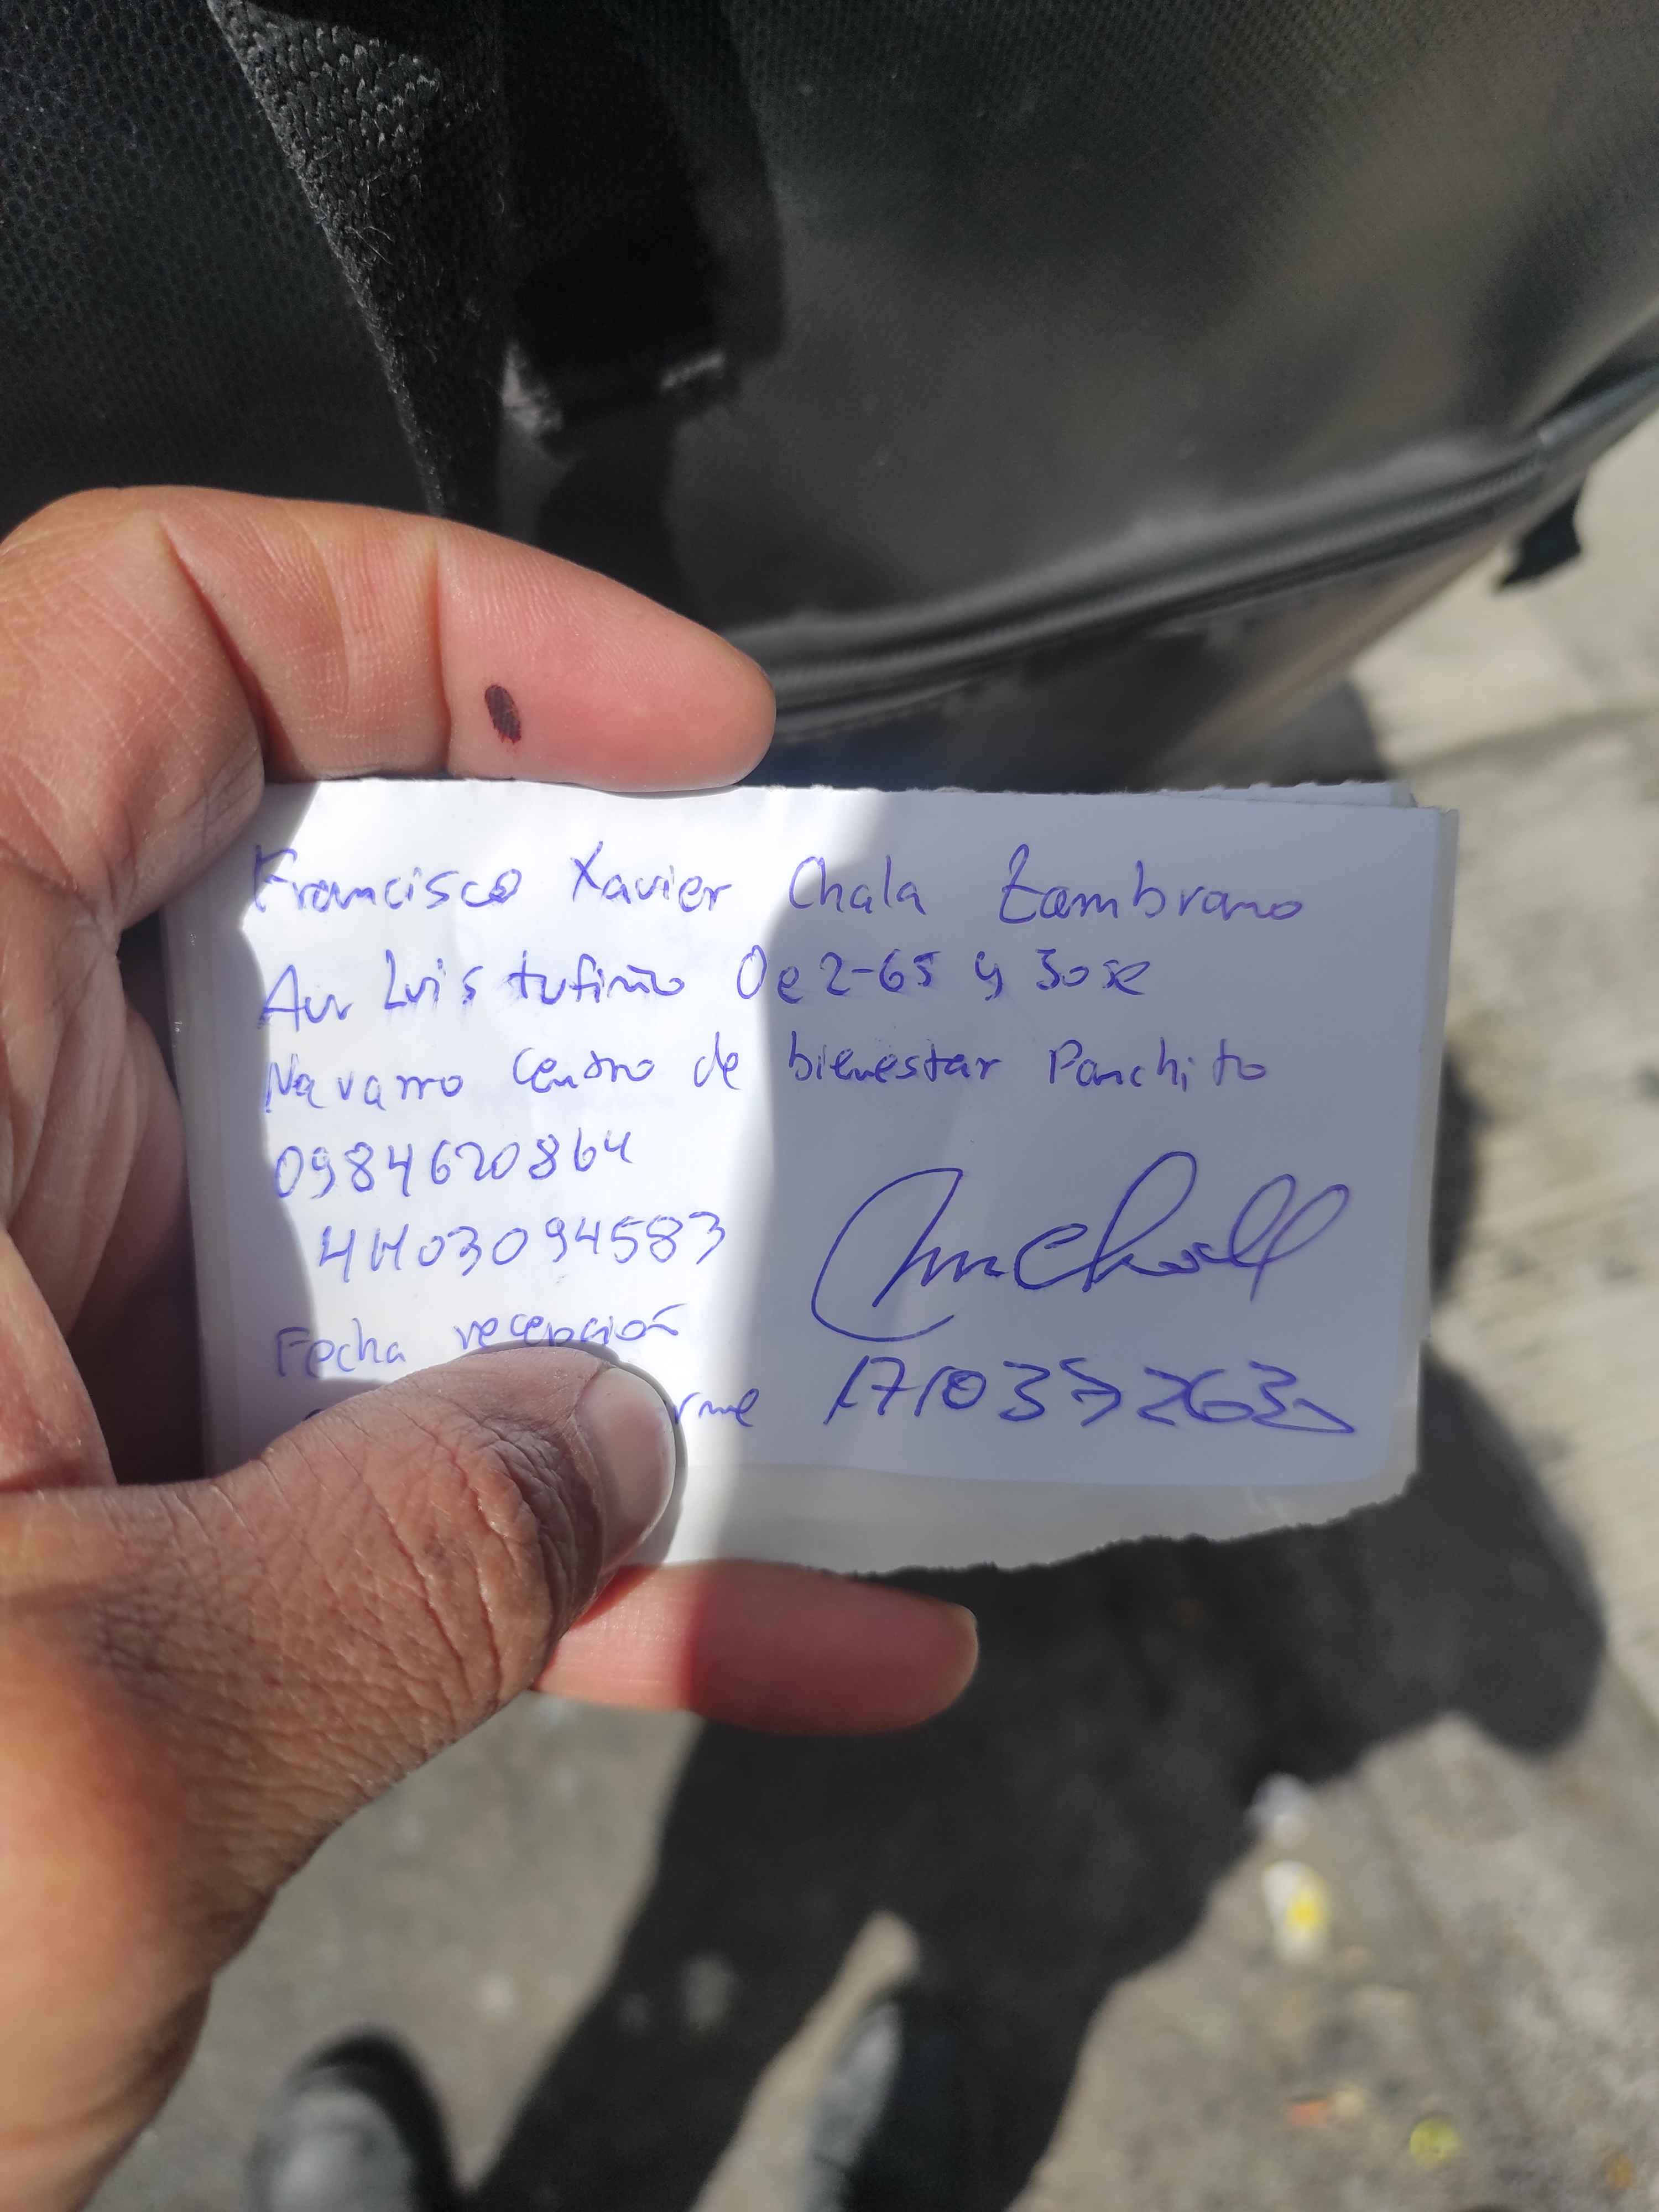 Francisco Xavier Chala Zambrano
Av Luis tufiño Oe2-65 y Jose
Navarro Centro de bienestar Panchito
0984620864
4H03094583
Fecha recepción
rme